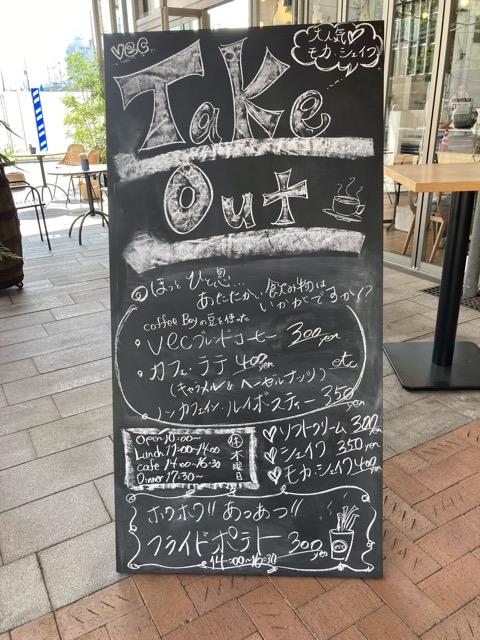 vec
大人気♡
モカ・シェイク
Take
Out
ほっとひと息...
あたたかい飲み物は
いかがですか!?
coffee Boyの豆を使った
vecブレンドコーヒー 300yen
カフェ・ラテ 400yen
(キャラメル&ヘーゼルナッツ) etc
ノンカフェイン・ルイボスティー 350yen
Open 10:00~
Lunch 11:00~14:00
cafe 14:00~16:30
Dinner 17:30~
休 木曜日
♡ソフトクリーム 300yen
♡シェイク 350yen
♡モカ・シェイク 400yen
ホクホク!! あつあつ!!
フライドポテト 300yen
14:00~16:30
vec